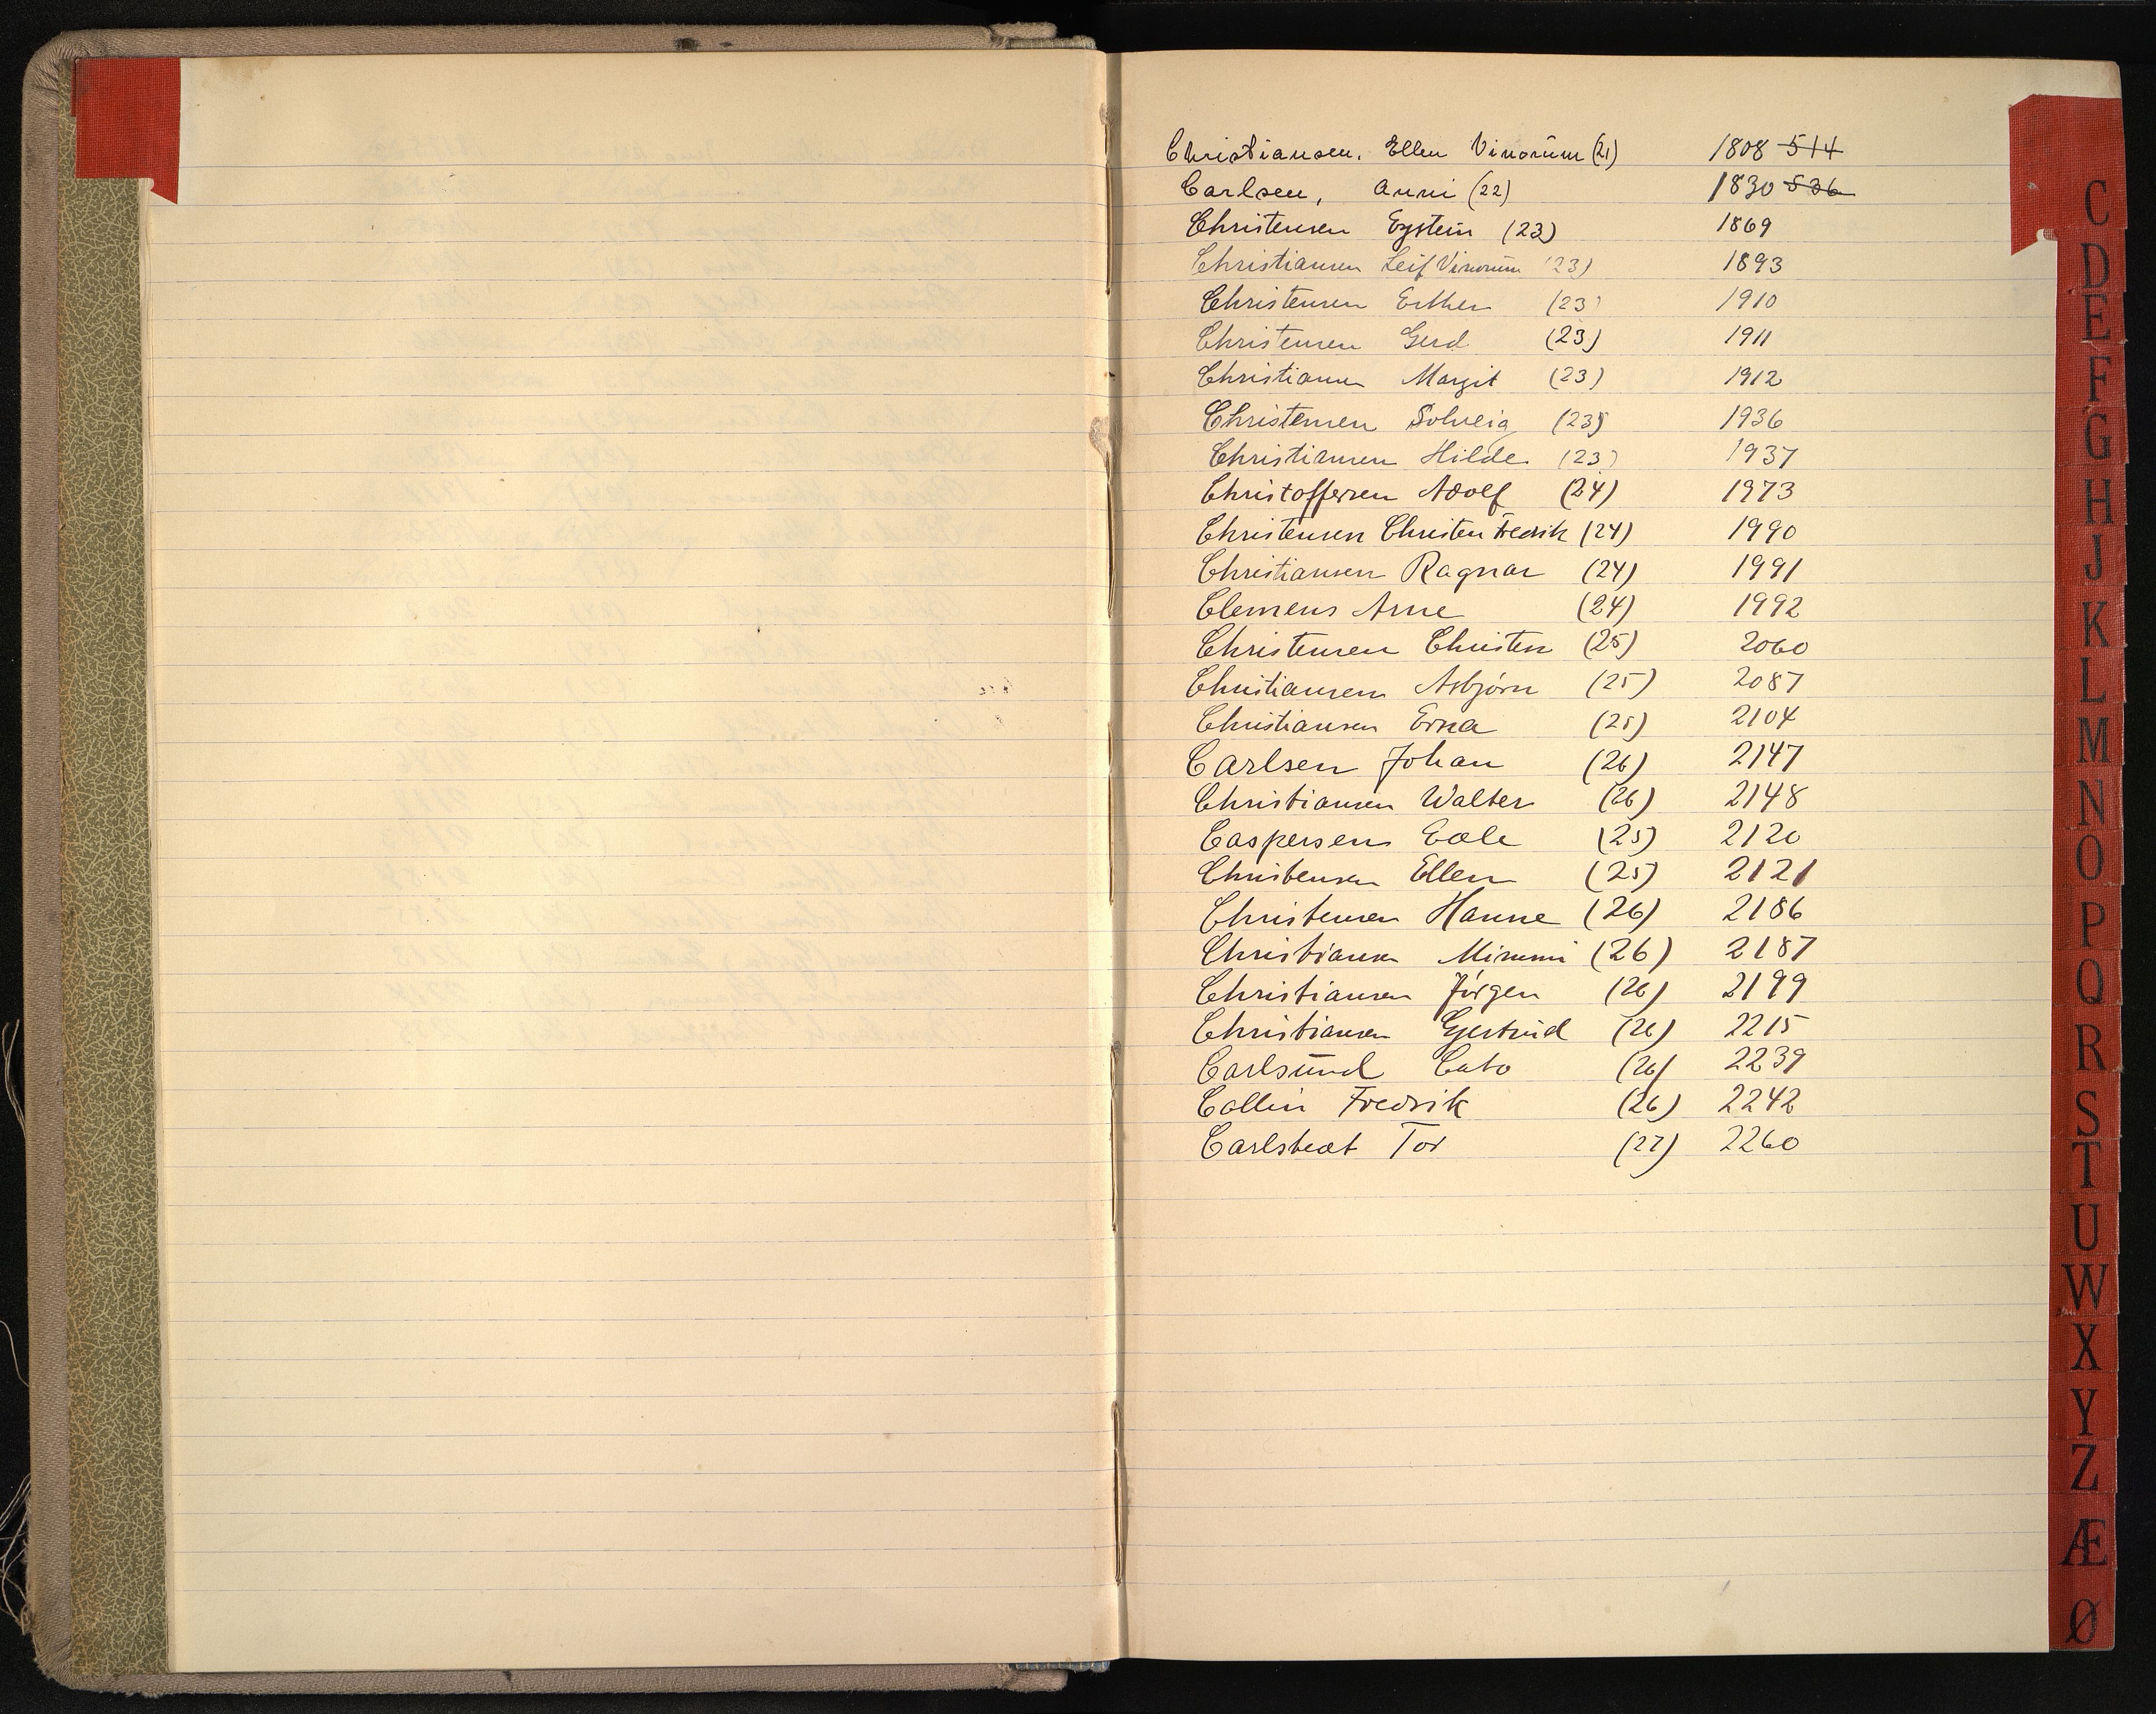 Christiansen, Ellen Vinorum (21) 1808 514
Carlsen, Anni (22) 1830 536
Christensen Eystein (23) 1869
Christiansen Leif Vinorum (23) 1893
Christensen Esther (23) 1910
Christensen Gerd (23) 1911
Christiansen Margit (23) 1912
Christensen Solveig (23) 1936
Christiansen Hilde (23) 1937
Christoffersen Adolf (24) 1973
Christensen Christen Fredrik (24) 1990
Christiansen Ragnar (24) 1991
Clemens Arne (24) 1992
Christensen Christen (25) 2060
Christiansen Asbjörn (25) 2087
Christiansen Erna (25) 2104
Carlsen Johan (26) 2147
Christiansen Walter (26) 2148
Caspersen (25) 2120
Christensen Ellen (25) 2121
Christensen Hanne (26) 2186
Christiansen Mimmi (26) 2187
Christiansen Jörgen (26) 2199
Christiansen Gjertrud (26) 2215
Carlsund Cato (26) 2239
Collin Fredrik (26) 2242
Carlstedt Tor (27) 2260
C
D
E
F
G
H
J
K
L
M
N
O
P
Q
R
S
T
U
W
X
Y
Z
Æ
Ø